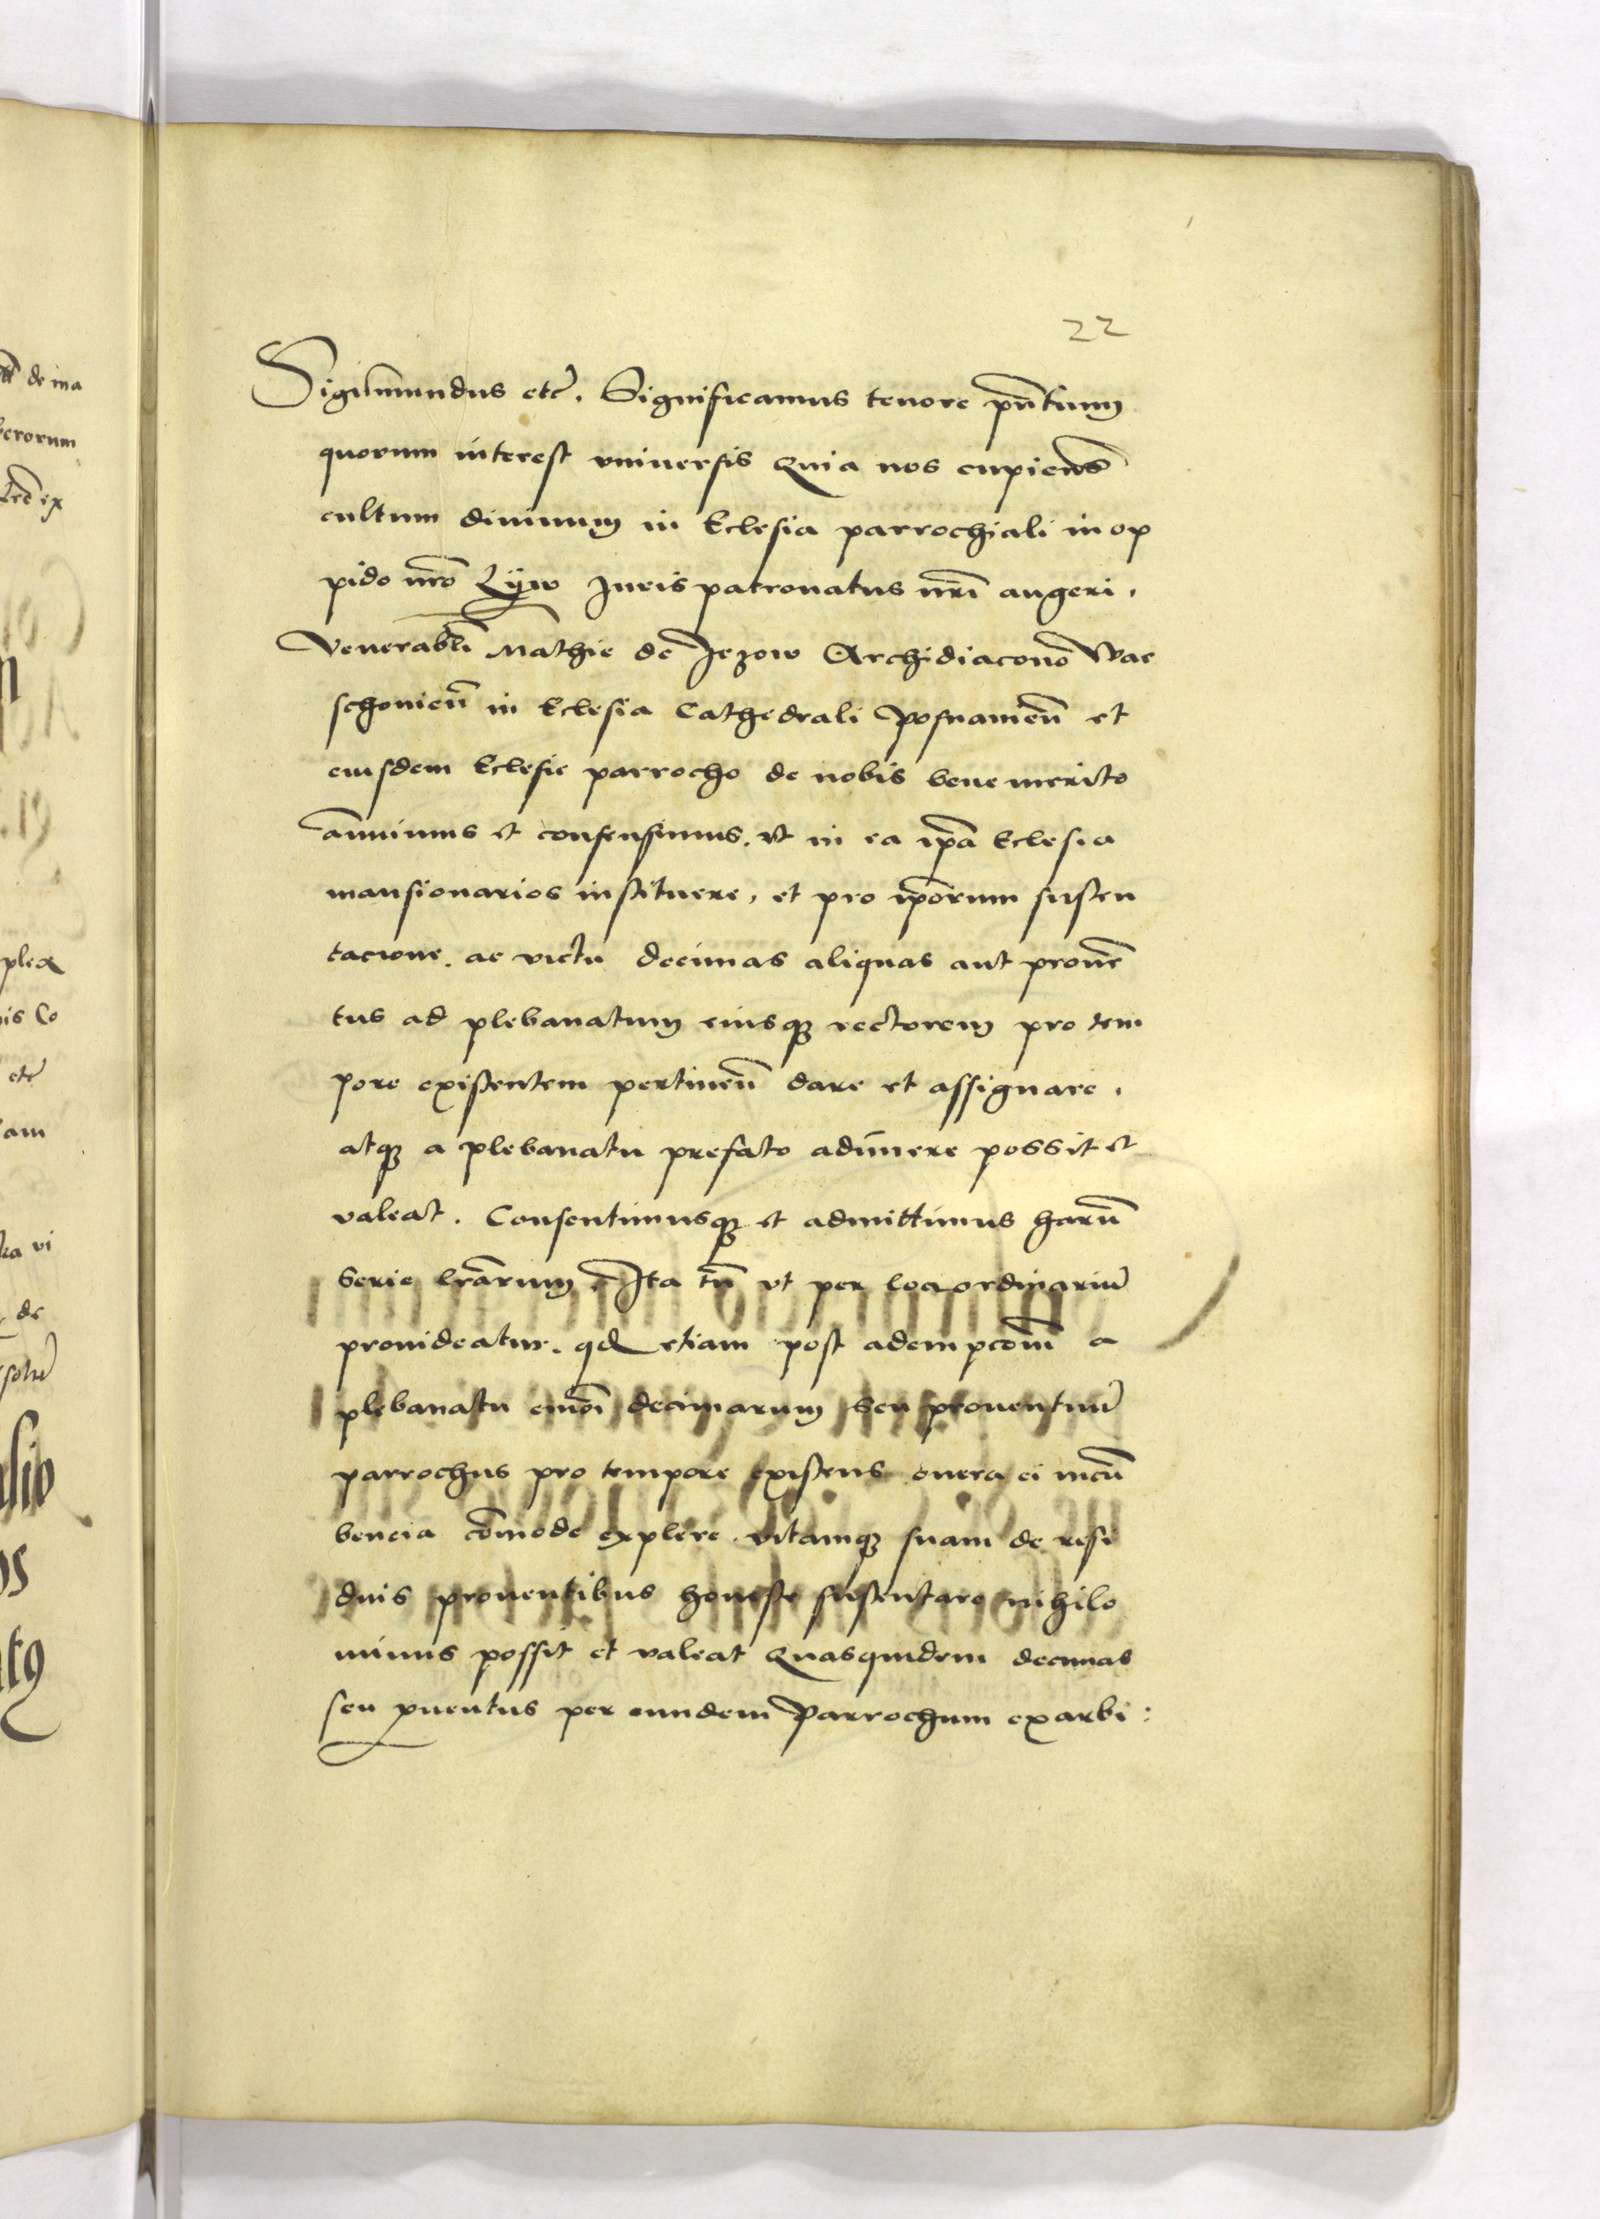 22
Sigismundus etc̃. Significamus tenore pñtium
quorum interest vniuersis Quia nos cupientes
cultum diuinum in Eclesia parrochiali in op
pido nr̃o Lyw Juris patronatus nr̃i augeri,
Venerabli Mathie de Jezow Archidiacono War
schouien̄ in Eclesia Cathedrali Posnamen̄ et
eiusdem Eclesie parrocho de nobis bene merito
annuimus et consensimus. vt in ea ip̄a Eclesia
mansionarios instituere, et pro ip̄orum susten
tacione. ac victu decimas aliquas aut prouen̄
tus ad plebanatum eiusq3 rectorem pro tem
pore existentem pertinen̄ dare et assignare.
atq3 a plebanatu prefato adimere possit et
valeat. Consentimusq3 et admittimus harū
serie lr̃arum. Ita tn̄ vt per loci ordinariū
prouideatur. qd etiam post adempcōm̄ a
plebanatu decimarum seu prouentuū
parrochus pro tempore existens onera ei incū
bencia cōmode explere. vitamq3 suam de resi
duis prouentibus honeste sustentare nihilo
minus possit et valeat Quasquidem decimas
seu puentus per eundem Parrochum ex arbi: